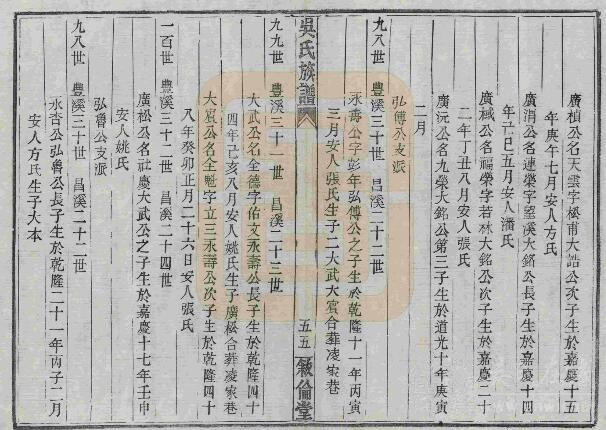 廣楨公名天雲字松甫大誥公次子生於嘉慶十五
年庚午七月安人方氏
廣渭公名連榮字璧溪大銘公長子生於嘉慶十四
年己巳五月安人潘氏
廣棫公名福榮字若林大銘公次子生於嘉慶二十
二年丁丑八月安人張氏
廣沅公名九榮大銘公第三子生於道光十年庚寅
二月
弘傅公支派
九八世 豐溪三十世 昌溪二十二世
永壽公字彭年弘傅公之子生於乾隆十一年丙寅
三月安人張氏生子二大武大賓合葬凌家巷
九九世 豐溪三十一世 昌溪二十三世
吳氏族譜
五五
敘倫堂
大武公名全德字佑文永壽公長子生於乾隆四十
四年己亥八月安人姚氏生子廣松合葬凌家巷
大賓公名全魁字立三永壽公次子生於乾隆四十
八年癸卯正月二十六日安人張氏
一百世 豐溪三十二世 昌溪二十四世
廣松公名社慶大武公之子生於嘉慶十七年壬申
安人姚氏
弘魯公支派
九八世 豐溪三十世 昌溪二十二世
永杏公弘魯公長子生於乾隆二十一年丙子二月
安人方氏生子大本